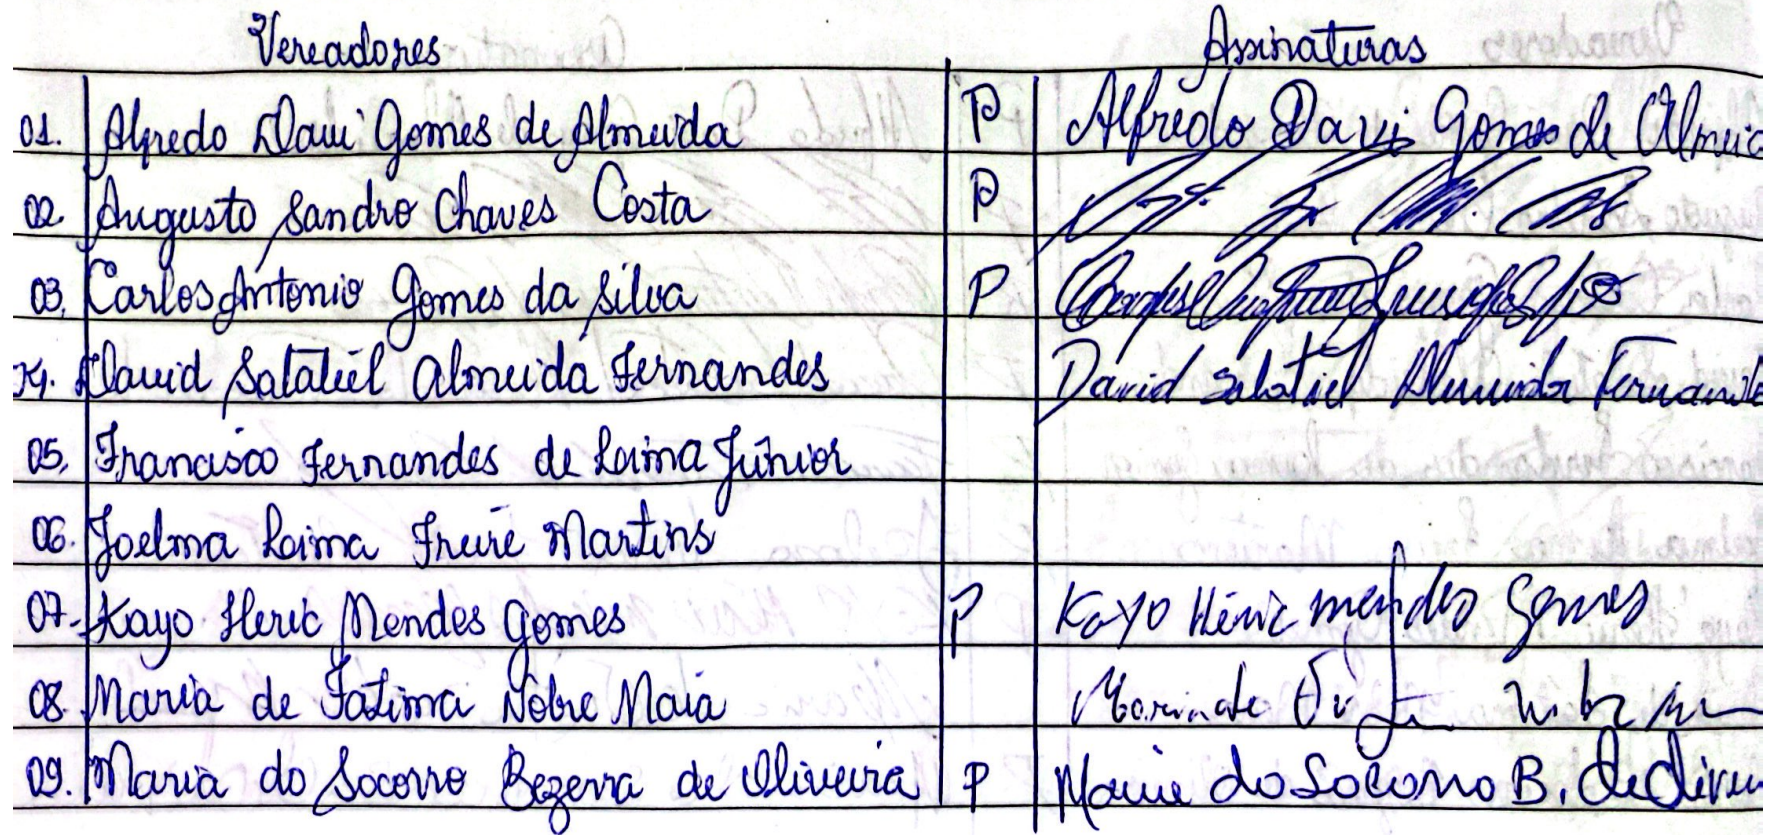 Vereadores Assinaturas
01. Alfredo Davi Gomes de Almeida P Alfredo Davi Gomes de Almeid
02. Augusto Sandro Chaves Costa P
03. Carlos Antonio Gomes da Silva P
04. David Salatiel Almeida Fernandes David Salatiel Almeida Fernande
05. Francisco Fernandes de Loima Júnior
06. Joelma Loima Freire Martins
07. Kayo Heric Mendes Gomes P Kayo Héric mendes Gomes
08. Maria de Fátima Nobre Maia Maria de
09. Maria do Socorro Bezerra de Oliveira P Maria do Socorro B. de Olivei